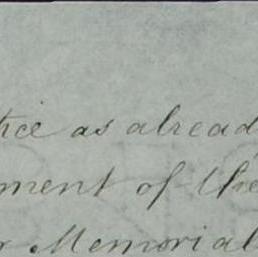 tice as alread
ment of the
r Memorial